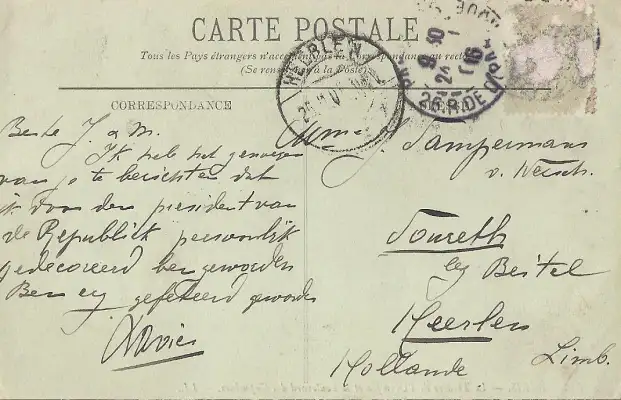 CARTE POSTALE
Tous les Pays étrangers n'acceptent pas la Correspondance au recto
(Se renseigner à la Poste)
HEERLEN
PARIS
CORRESPONDANCE
Beste J. & M.
Ik heb het genoegen
van je te berichten dat
ik door den president van
de Republiek persoonlijk
gedecoreerd ben geworden
Ben er gefeteerd geworden
Xavier
Mme J. Sampermans
v. Wersch.
Toureth
bey Beitel
Heerlen
Hollande Limb.